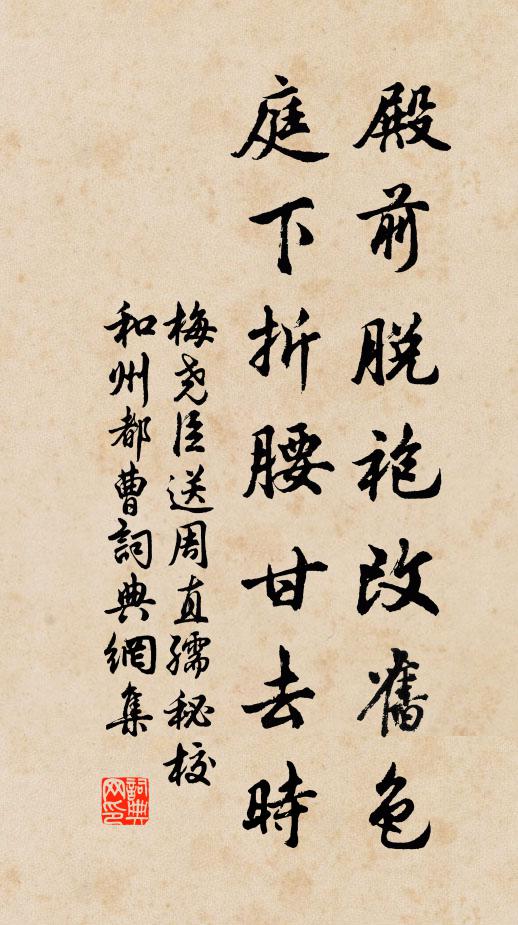 殿前脱袍改舊色
庭下折腰甘去時
梅尧臣送周直孺秘校
和州都曹詞典網集
詞典
网印